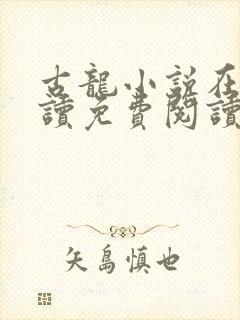 古龍小說在
讀免費閱讀
矢島慎也